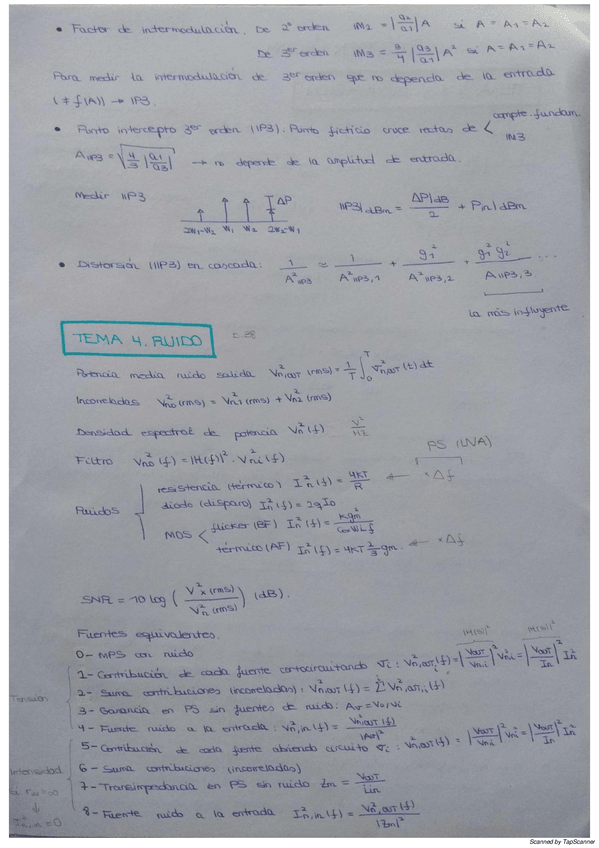 • Factor de intermodulación. De 2º orden IM₂ = |a₂/a₁| A si A = A₁ = A₂
De 3er orden IM₃ = 3/4 |a₃/a₁| A² si A = A₁ = A₂
Para medir la intermodulación de 3er orden que no dependa de la entrada
(≠ f(A)) → IP3.
• Punto intercepto 3er orden (IIP3). Punto ficticio cruce rectas de < compte. fundam.
IM3
A_IIP3 = √(4/3 |a₁/a₃|) → no depende de la amplitud de entrada.
Medir IIP3 ΔP IIP3|dBm = ΔP|dB / 2 + Pin|dBm
2w₁-w₂ w₁ w₂ 2w₂-w₁
• Distorsión (IIP3) en cascada: 1/A²IIP3 ≈ 1/A²IIP3,1 + g₁²/A²IIP3,2 + g₁² g₂²/AIIP3,3 ...
la más influyente
TEMA 4. RUIDO
Potencia media ruido salida V²n,out (rms) = 1/T ∫₀ᵀ v²n,out (t) dt
Incorreladas V²no (rms) = V²n1 (rms) + V²n2 (rms)
Densidad espectral de potencia V²n (f) V²/Hz
PS (LNA)
Filtro V²no (f) = |H(f)|² · V²ni (f)
resistencia (térmico) I²n (f) = 4KT/R ← ×Δf
diodo (disparo) I²n (f) = 2q I_D
Ruidos
MOS < flicker (BF) I²n (f) = K gm²/Cox W L f
térmico (AF) I²n (f) = 4KT 2/3 gm. ← ×Δf
SNR = 10 log (V²x (rms) / V²n (rms)) (dB).
Fuentes equivalentes.
|H(f)|² |H(f)|²
0- MPS con ruido
1- Contribución de cada fuente cortocircuitando vi: V²n,outi (f) = |Vout/Vni|² V²ni = |Vout/In|² I²n
2- Suma contribuciones (incorreladas): V²n,out (f) = Σ V²n,outi (f)
Tensión
3- Ganancia en PS sin fuentes de ruido: Av = Vo/Vi
4- Fuente ruido a la entrada: V²n,in (f) = V²n,out (f) / |Av|²
5- Contribución de cada fuente abriendo circuito vi: V²n,outi (f) = |Vout/Vni|² V²ni = |Vout/In|² I²n
Intensidad
6- Suma contribuciones (incorreladas)
si rin = ∞
7- Transimpedancia en PS sin ruido Zm = Vout/Iin
↓
I²n,in = 0
8- Fuente ruido a la entrada I²n,in (f) = V²n,out (f) / |Zm|²
Scanned by TapScanner